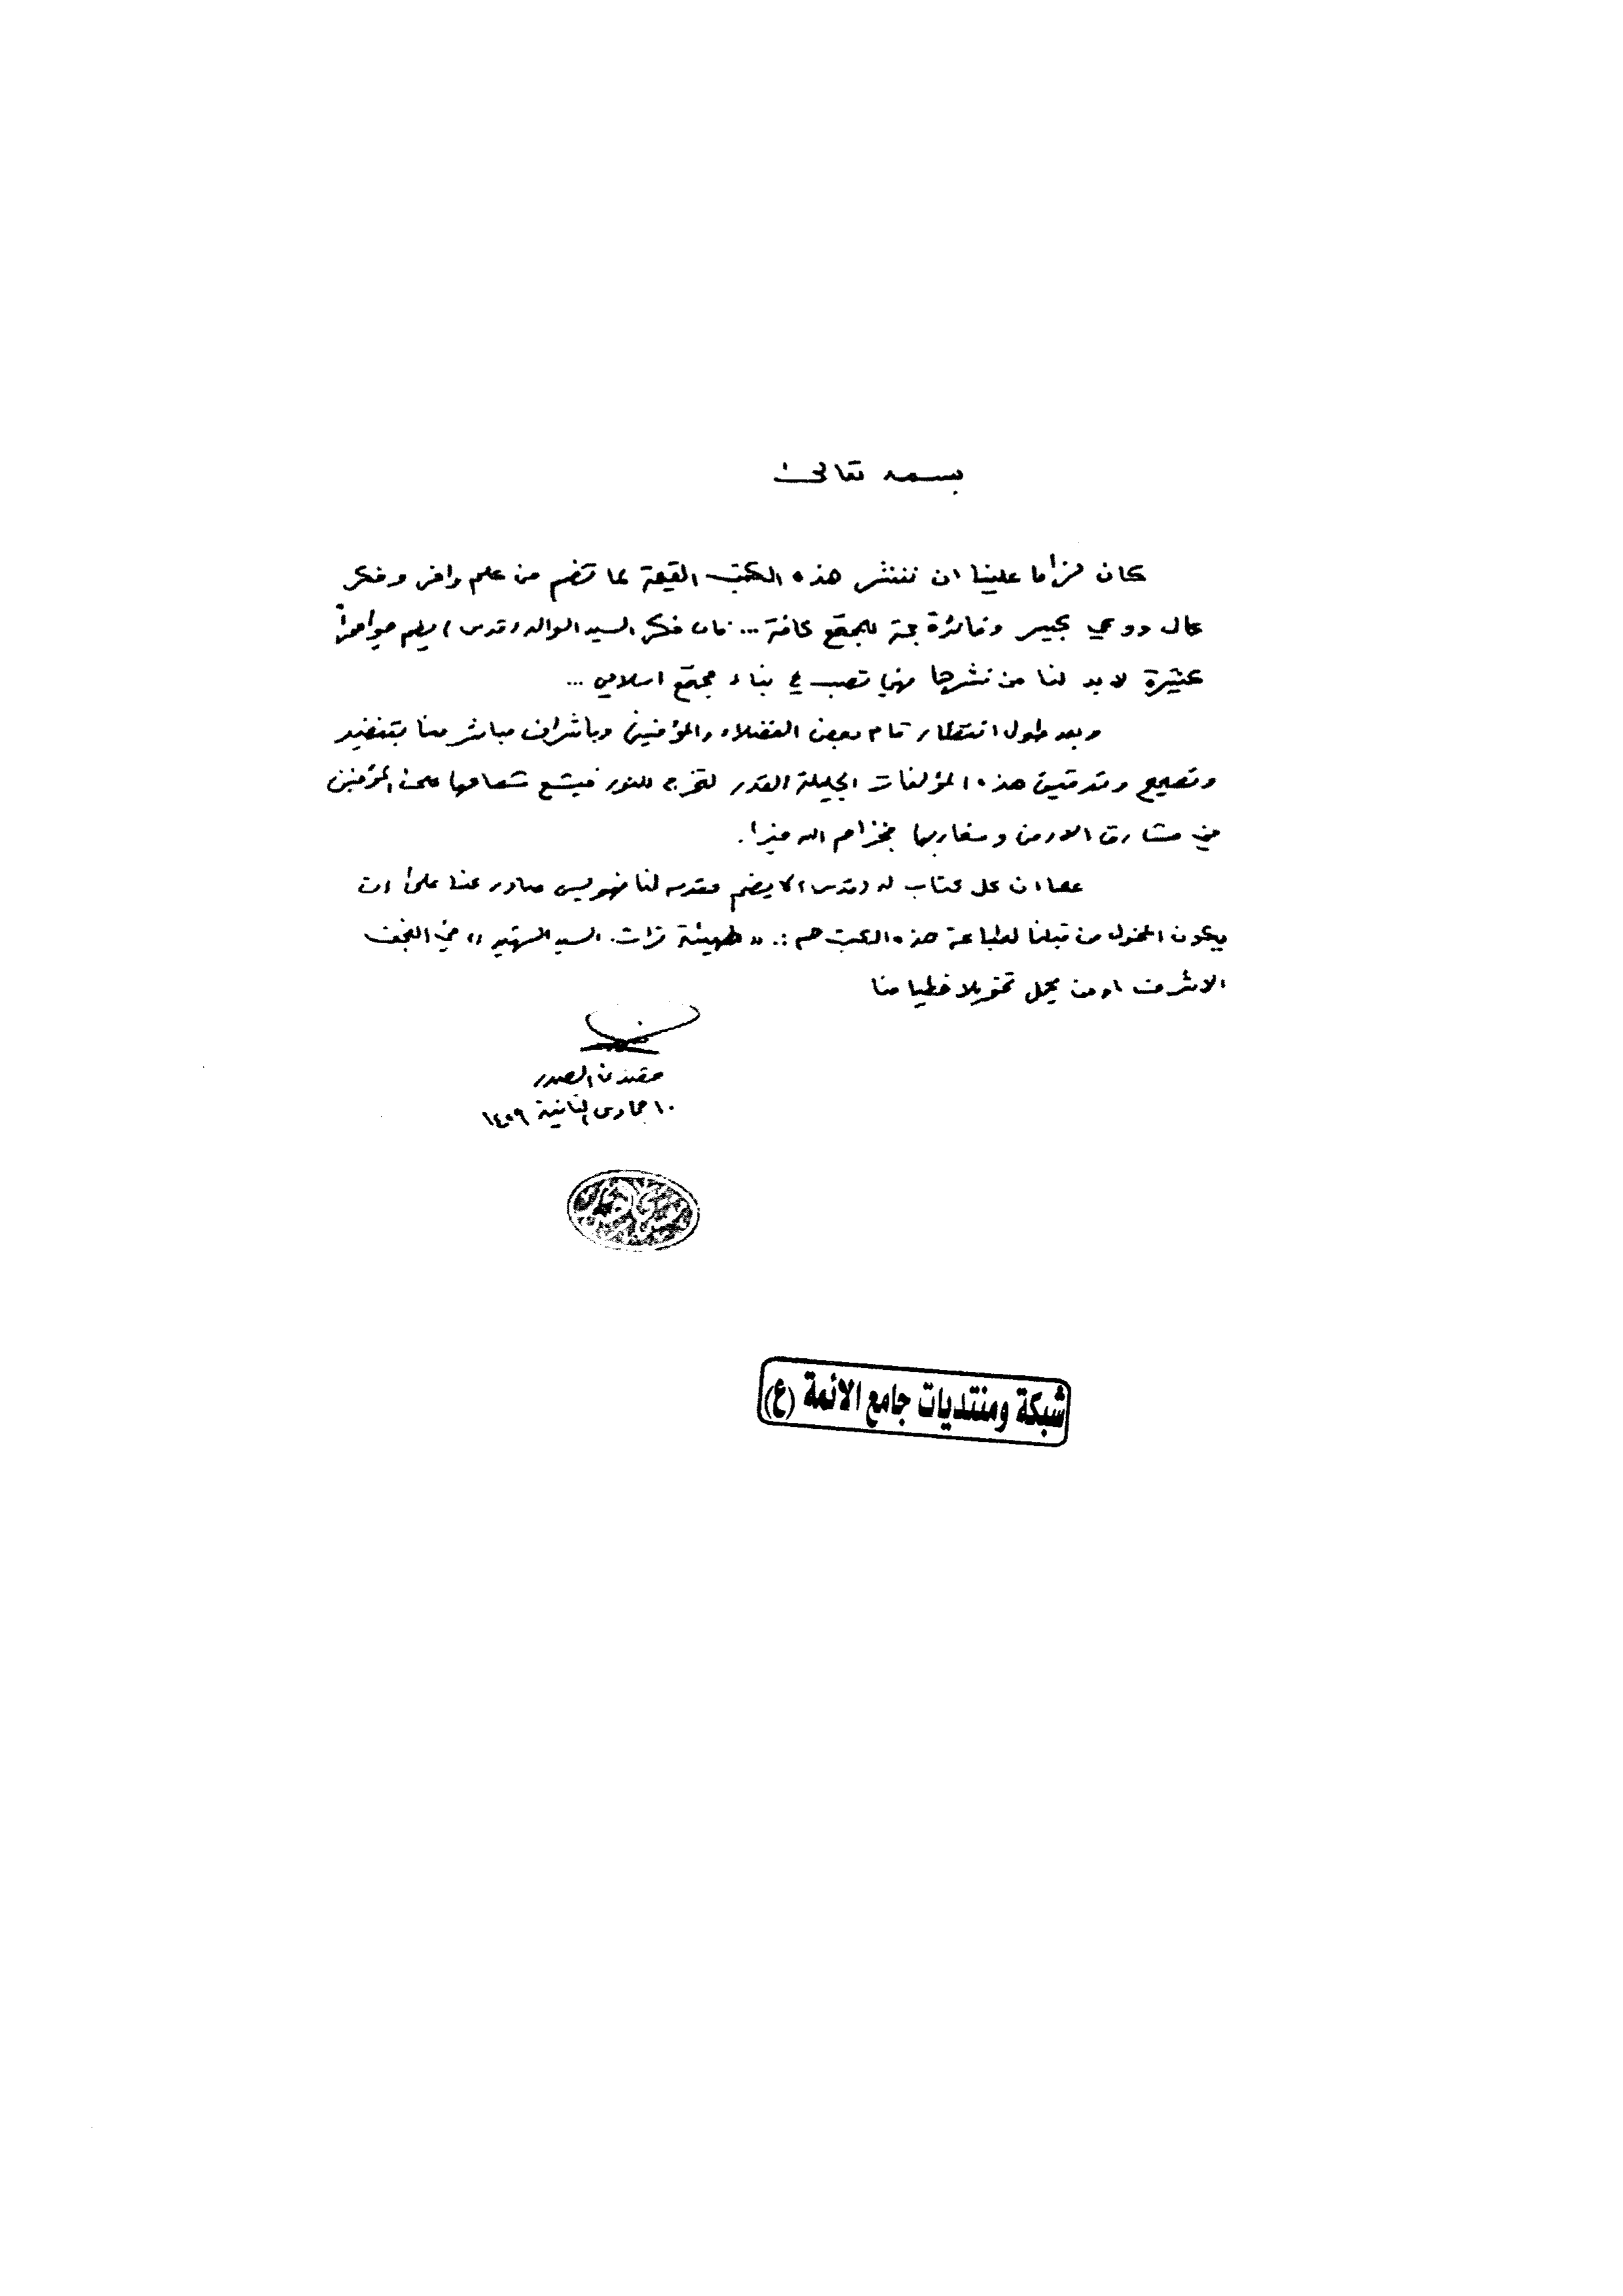 بسمه تعالى
كان لزاما علينا ان ننشر هذه الكتب القيمة لما تضم من علم وافر وفكر
عال ووعي كبير وفائدة جمة للمجتمع كافة ... فان فكر السيد الوالد (قدس) يضم جواهراً
كثيرة لا بد لنا من نشرها فهي تصب في بناء مجتمع اسلامي ...
وبعد طول انتظار قام بعض الفضلاء والمؤمنين وباشراف مباشر منا بتنضيد
وتصحيح وتدقيق هذه المؤلفات الجليلة القدر لتخرج للنور فيشع شعاعها على المؤمنين
في مشارق الارض ومغاربها فجزاهم الله خيرا.
كما ان كل كتاب له (قدس) لا يضم مقدمه لنا فهو ليس صادر عنا على ان
يكون المخول من قبلنا لطباعة هذه الكتب هم :. "هيئة تراث السيد الشهيد" في النجف
الاشرف او من يحمل تخويلا خطيا منا
مقتدى الصدر
١٠ جمادى الثانية ١٤٢٩
شبكة ومنتديات جامع الائمة (ع)